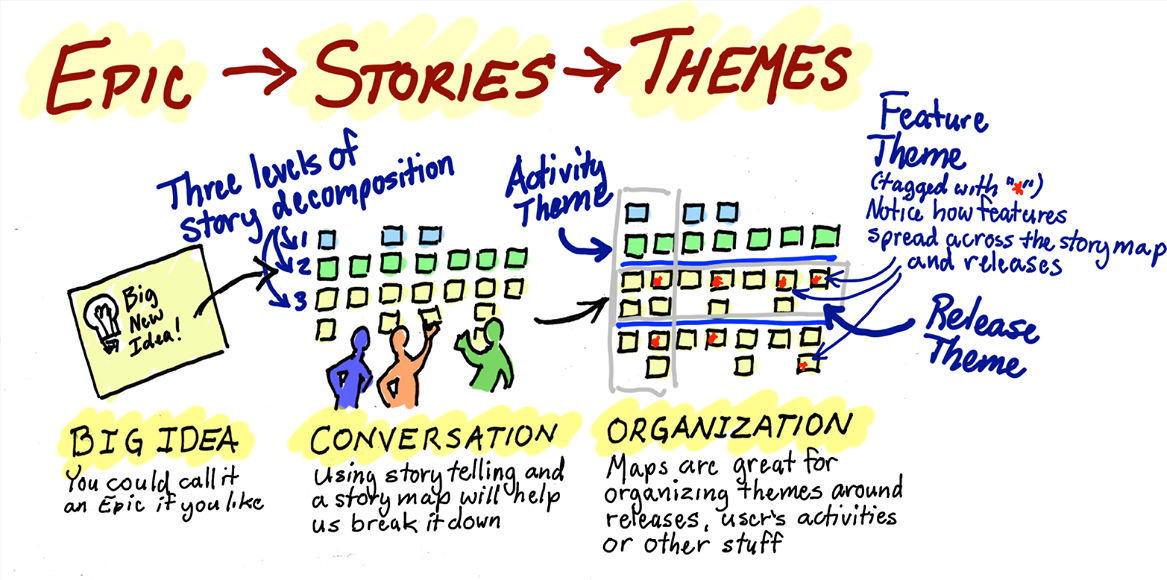 EPIC → STORIES → THEMES
Three levels of
story decomposition
1
2
3
Big
New
Idea!
Activity
Theme
Feature
Theme
(tagged with "*")
Notice how features
spread across the story map
and releases
Release
Theme
BIG IDEA
You could call it
an Epic if you like
CONVERSATION
Using story telling and
a story map will help
us break it down
ORGANIZATION
Maps are great for
organizing themes around
releases, user's activities
or other stuff